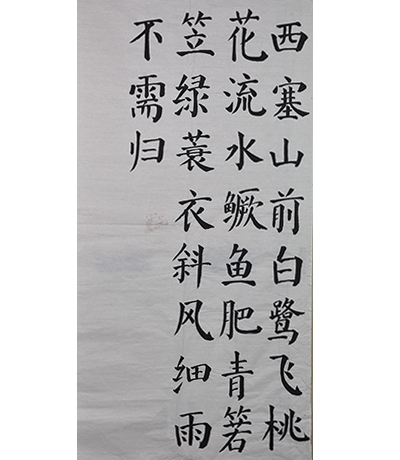 西塞山前白鹭飞桃
花流水鳜鱼肥青箬
笠绿蓑衣斜风细雨
不需归